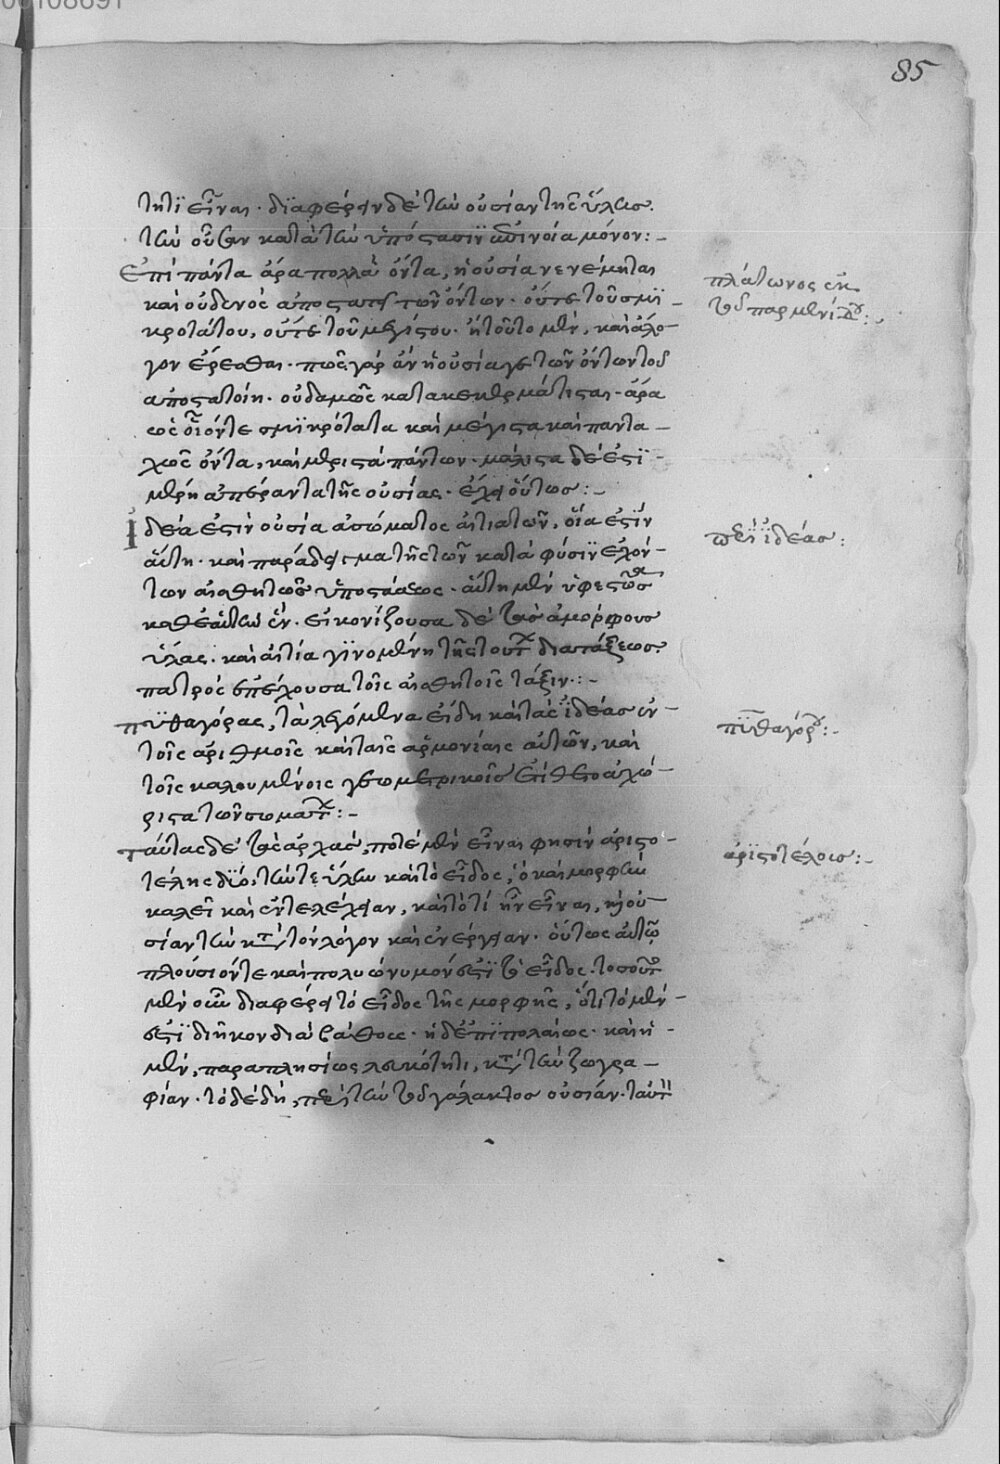 85
τητϊ εἶναι· δϊαφέρειν δὲ τὴν οὐσίαν τῆς ὕλης.
τὴν οὖσαν κατὰ τὴν ὑπόστασϊν ἐπινοία μόνον:-
Ἐπὶ πάντα ἄρα πολλὰ ὄντα, ἡ οὐσία νενέμηται
καὶ οὐδενὸς ἀποστατεῖ τῶν ὄντων· οὔτε τοῦ σμϊ-
κροτάτου, οὔτε τοῦ μεγίστου· ἢ τοῦτο μὲν, καὶ ἄλο-
γον ἐρέσθαι· πῶς γὰρ ἂν ἡ οὐσία γε τῶν ὄντων του
ἀποστατοίη· οὐδαμῶς κατακεκερμάτισται· ἄρα
ὡς οἷόν τε σμϊκρότατα καὶ μέγιστα καὶ παντα-
χῶς ὄντα, καὶ μεριστὰ πάντων· μάλιστα δὲ ἐστϊ-
μέρη ἀπέραντα τῆς οὐσίας· ἔχει οὕτως:-
Ἰδέα ἐστὶν οὐσία ἀσώματος αἰτία τῶν, οἷα ἐστὶν
αὕτη· καὶ παράδειγμα τῆς τῶν κατὰ φύσϊν ἐχόν-
των αἰσθητῶν ὑποστάσεως· αὕτη μὲν ὑφεστῶσα
καθ' ἑαυτὴν ἕν· εἰκονίζουσα δὲ τὰς ἀμόρφους
ὕλας· καὶ αἰτία γϊνομένη τῆς τούτων διατάξεως.
πατρὸς ἐπέχουσα τοῖς αἰσθητοῖς τάξιν:-
πυθαγόρας, τὰ λεγόμενα εἴδη καὶ τὰς ἰδέας ἐν-
τοῖς ἀριθμοῖς καὶ ταῖς ἁρμονίαις αὐτῶν, καὶ
τοῖς καλουμένοις γεωμετρικοῖς ἐπίθετο ἀχώ-
ριστα τῶν σωμάτων:-
ταύτας δὲ τὰς ἀρχὰς, ποτὲ μὲν εἶναι φησὶν ἀριστο-
τέλης δϊό, τήν τε ὕλην καὶ τὸ εἶδος, ὃ καὶ μορφὴν
καλεῖ καὶ ἐντελέχειαν, καὶ τὸ τί ἦν εἶναι, ἢ οὐ-
σίαν τὴν κατὰ τὸν λόγον καὶ ἐνέργειαν· οὕτως αὐτῷ
πλούσιόν τε καὶ πολυώνυμόν ἐστϊ τὸ εἶδος· τοσοῦτον
μὲν οὖν διαφέρει τὸ εἶδος τῆς μορφῆς, ὅτι τὸ μὲν-
ἐστϊ διῆκον διὰ βάθους· ἡ δὲ ἐπϊπολαίως· καὶ ἡ-
μὲν, παραπλησίως λευκότητι, κατὰ τὴν ζωγρα-
φίαν· τὸ δὲ δὴ, περὶ τὴν τοῦ γάλακτος οὐσίαν· ταύτην
πλάτωνος ἐκ
τοῦ παρμενίδου:-
περὶ ἰδέας:
πϋθαγόρου:-
ἀρϊστοτέλους:-